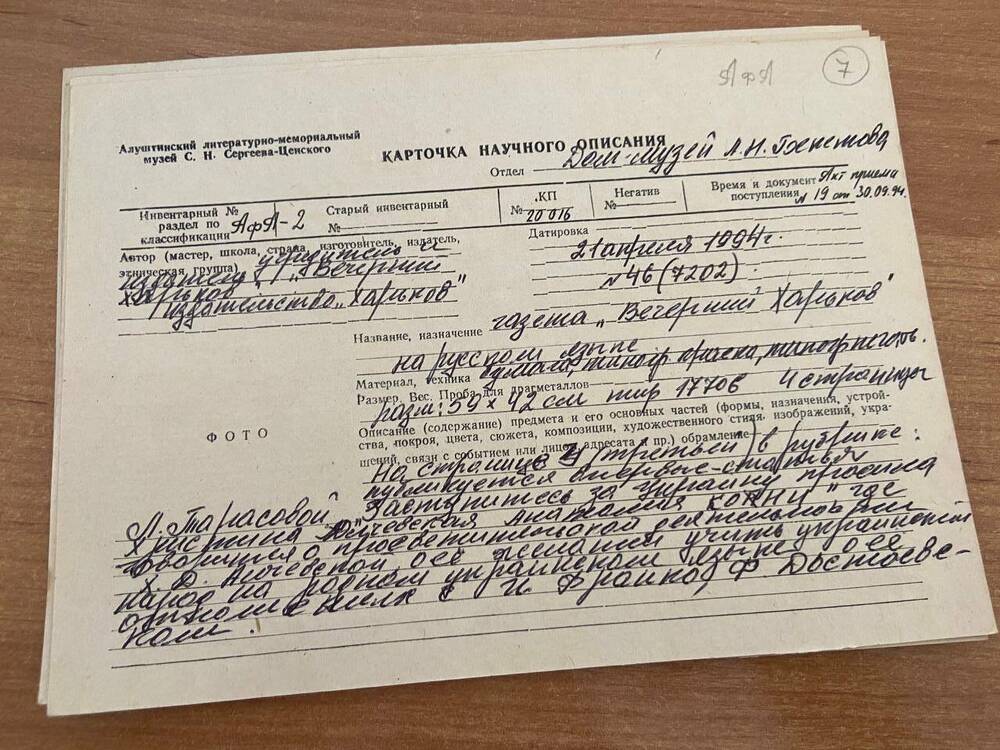 АфА
7
Алуштинский литературно-мемориальный
музей С. Н. Сергеева-Ценского
КАРТОЧКА НАУЧНОГО ОПИСАНИЯ
Отдел Дом-музей А.Н. Бекетова
Инвентарный №
раздел по
классификации АфА-2
Старый инвентарный
№
КП
№ 20016
Негатив
№
Время и документ Акт приема
поступления №19 от 30.09.94.
Автор (мастер, школа, страна, изготовитель, издатель,
этническая группа) учредитель и
издатель "Вечерний
Харьков"
издательство "Харьков"
Датировка
21 апреля 1994 г.
№ 46 (7202)
Название, назначение газета "Вечерний Харьков"
на русском языке
Материал, техника бумага, типогр. краска, типогр. печать.
Размер. Вес. Проба для драгметаллов
разм: 59 х 42 см тир 17706 4 страницы
Описание (содержание) предмета и его основных частей (формы, назначения, устрой-
ства, покроя, цвета, сюжета, композиции, художественного стиля, изображений, укра-
шений, связи с событием или лицом, адресата и пр.) обрамление
ФОТО
На странице 3 (третьей) в рубрике:
публикуется впервые - статья
Л. Тарасовой "Заступитесь за Украину просила
Христина Алчевская Анатолия Кони" где
говорится о просветительской деятельности
Х. Д. Алчевской о её желании учить украинский
народ на родном украинском языке о её
отношениях с И. Франко, Ф. Достоевс-
ким.